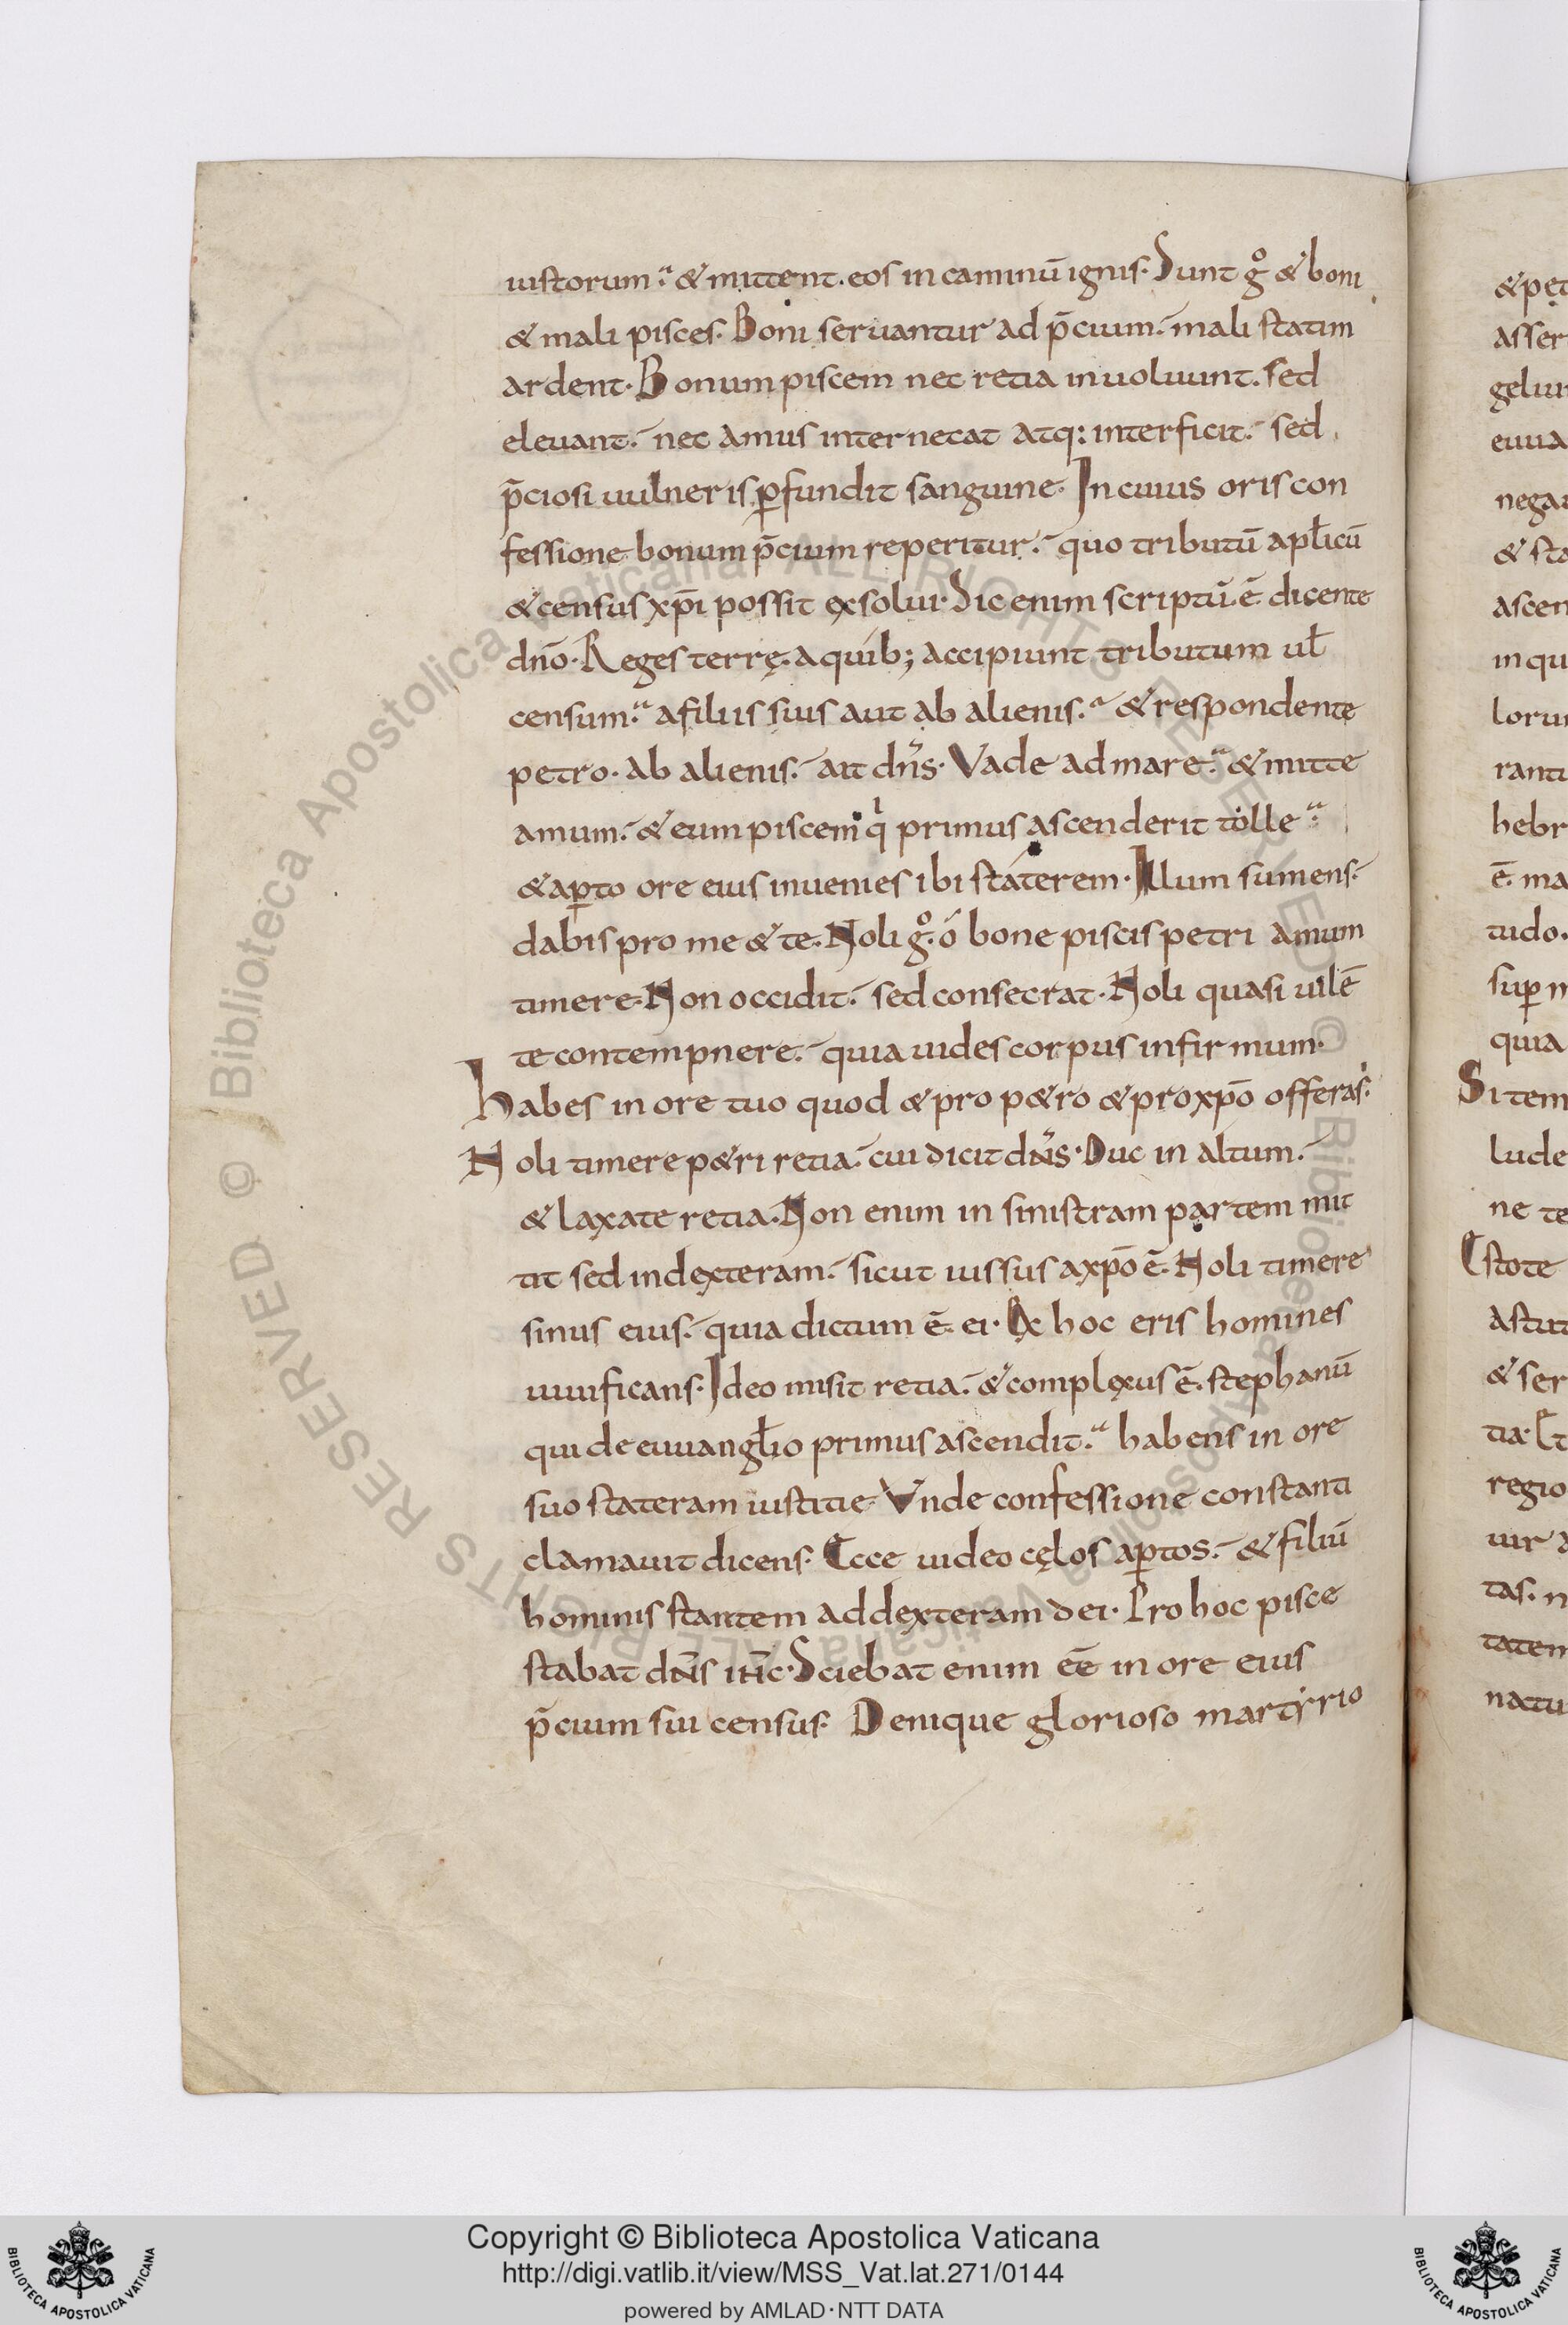 iustorum. & mittent. eos in caminū ignis. Sunt gͦ & boni
& mali pisces. Boni seruantur ad p̄cium. mali statim
ardent. Bonum piscem nec retia inuoluunt. sed
eleuant. nec amus internecat atq: interficit. sed
p̄ciosi uulneris ꝑfundit sanguine. In cuius oris con
fessione bonum p̄cium reperitur. quo tributū apłicū
& census xp̄i possit exsolui. Sic enim scriptū ē dicente
dn̄o. Reges terrę. a quib; accipiunt tributum uł
censum. a filiis suis aut ab alienis. & respondente
petro. ab alienis. ait dn̄s. Vade ad mare. & mitte
amum. & eum piscem qi primus ascenderit tolle
& aꝑto ore eius inuenies ibi staterem. Illum sumens
dabis pro me & te. Noli gͦ. ó bone piscis petri amum
timere. Non occidit. sed consecrat. Noli quasi uilē
te contempnere. quia uides corpus infirmum.
Habes in ore tuo quod & pro p&ro & pro xp̄o offeras.
Noli timere p&ri retia. cui dicit dn̄s. Duc in altum.
& laxate retia. Non enim in sinistram partem mit
tit sed in dexteram. sicut iussus a xp̄o ē. Noli timere
sinus eius. quia dictum ē. ei. Ex hoc eris homines
uiuificans. Ideo misit retia. & complexus ē. stephanū
qui de euuangłio primus ascendit. habens in ore
suo stateram iustitie. Vnde confessione constanti
clamauit dicens. Ecce uideo cęlos aꝑtos. & filiū
hominis stantem ad dexteram dei. Pro hoc pisce
stabat dn̄s ih̄c. Sciebat enim eē in ore eius
p̄cium sui census. Denique glorioso martyrio
& pet
asser
geliu
euua
negau
& sta
ascen
in qu
loru
ranti
hebr
ē. ma
tudo.
suꝑ
quia
Si tem
lude
ne te
Estote
astut
& ser
tia. Et
regio
uir
tas. n
tatem
natu
Biblioteca Apostolica Vaticana ALL RIGHTS RESERVED © Biblioteca Apostolica Vaticana ALL RIGHTS RESERVED ©
Copyright © Biblioteca Apostolica Vaticana
http://digi.vatlib.it/view/MSS_Vat.lat.271/0144
powered by AMLAD·NTT DATA
BIBLIOTECA APOSTOLICA VATICANA
BIBLIOTECA APOSTOLICA VATICANA